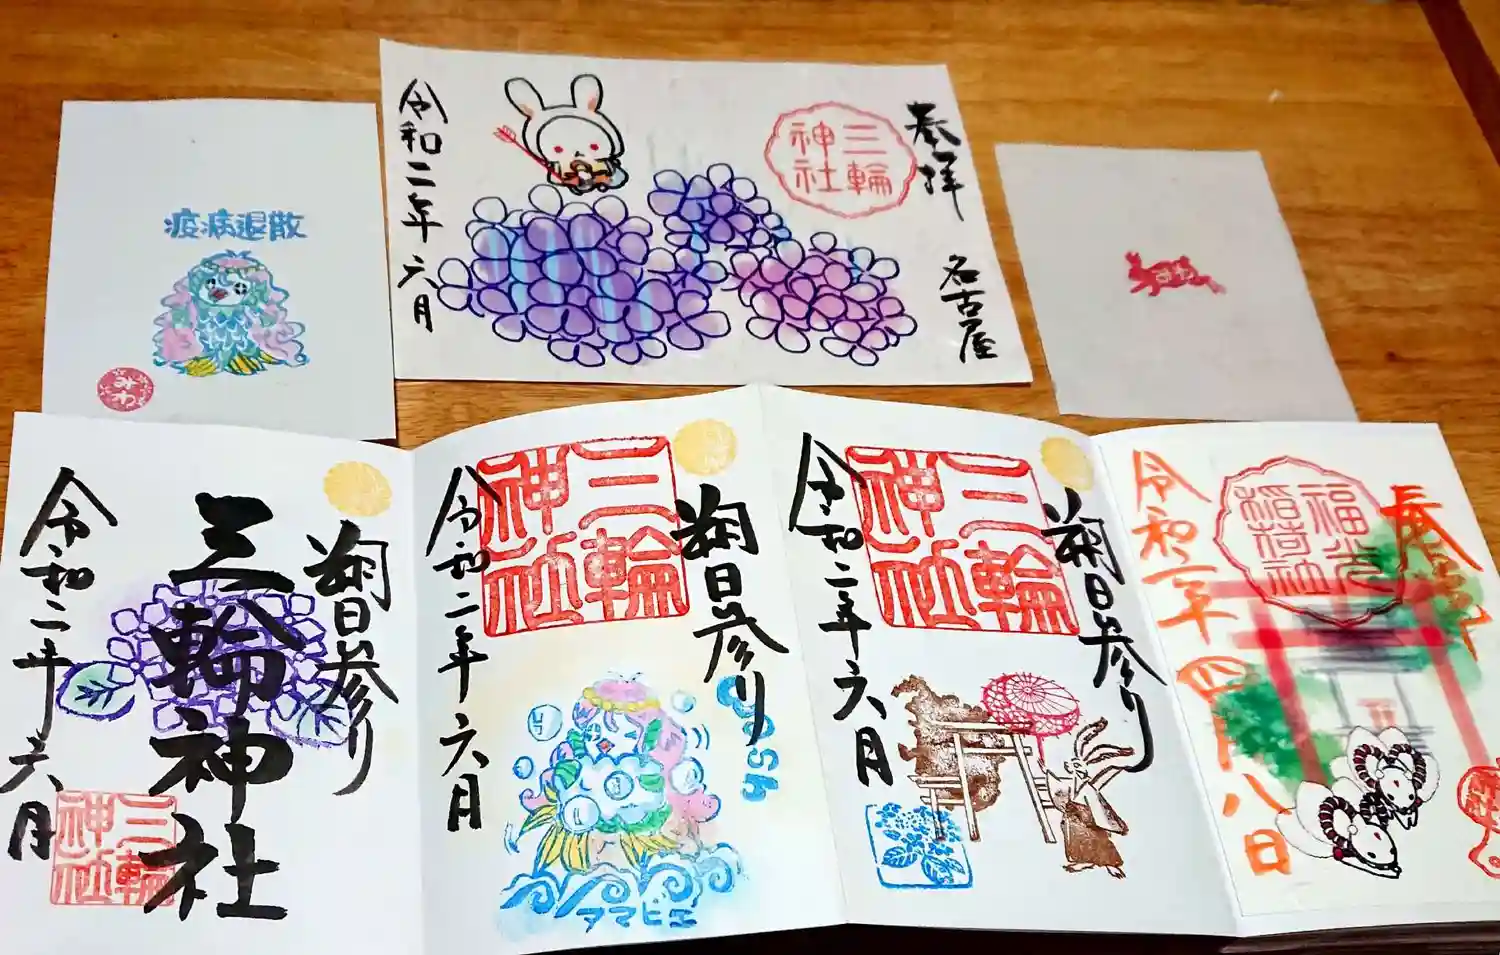 疫病退散
みわ
奉拝
三輪
神社
名古屋
令和二年 六月
朔日参り
三輪神社
三輪
神社
令和二年 六月
朔日参り
三輪
神社
令和二年 六月
アマビエ
朔日参り
三輪
神社
令和二年 六月
福光
稲荷社
令和二年 四月八日